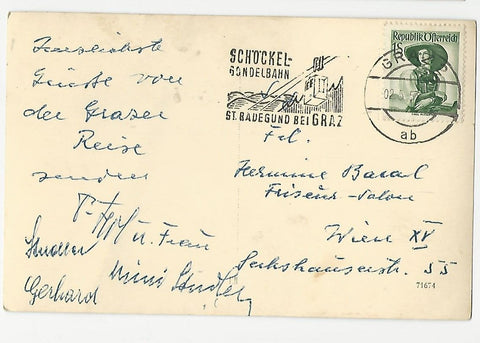 Herzlichste
Grüsse von
der Grazer
Reise
senden
u. Frau
Gerhard
Mimi
SCHÖCKEL-
GONDELBAHN
ST. RADEGUND BEI GRAZ
Republik Österreich
1S
GRAZ
ab
Frl.
Hermine
Friseur-Salon
Wien XV
Sechshauserstr. 55
71674